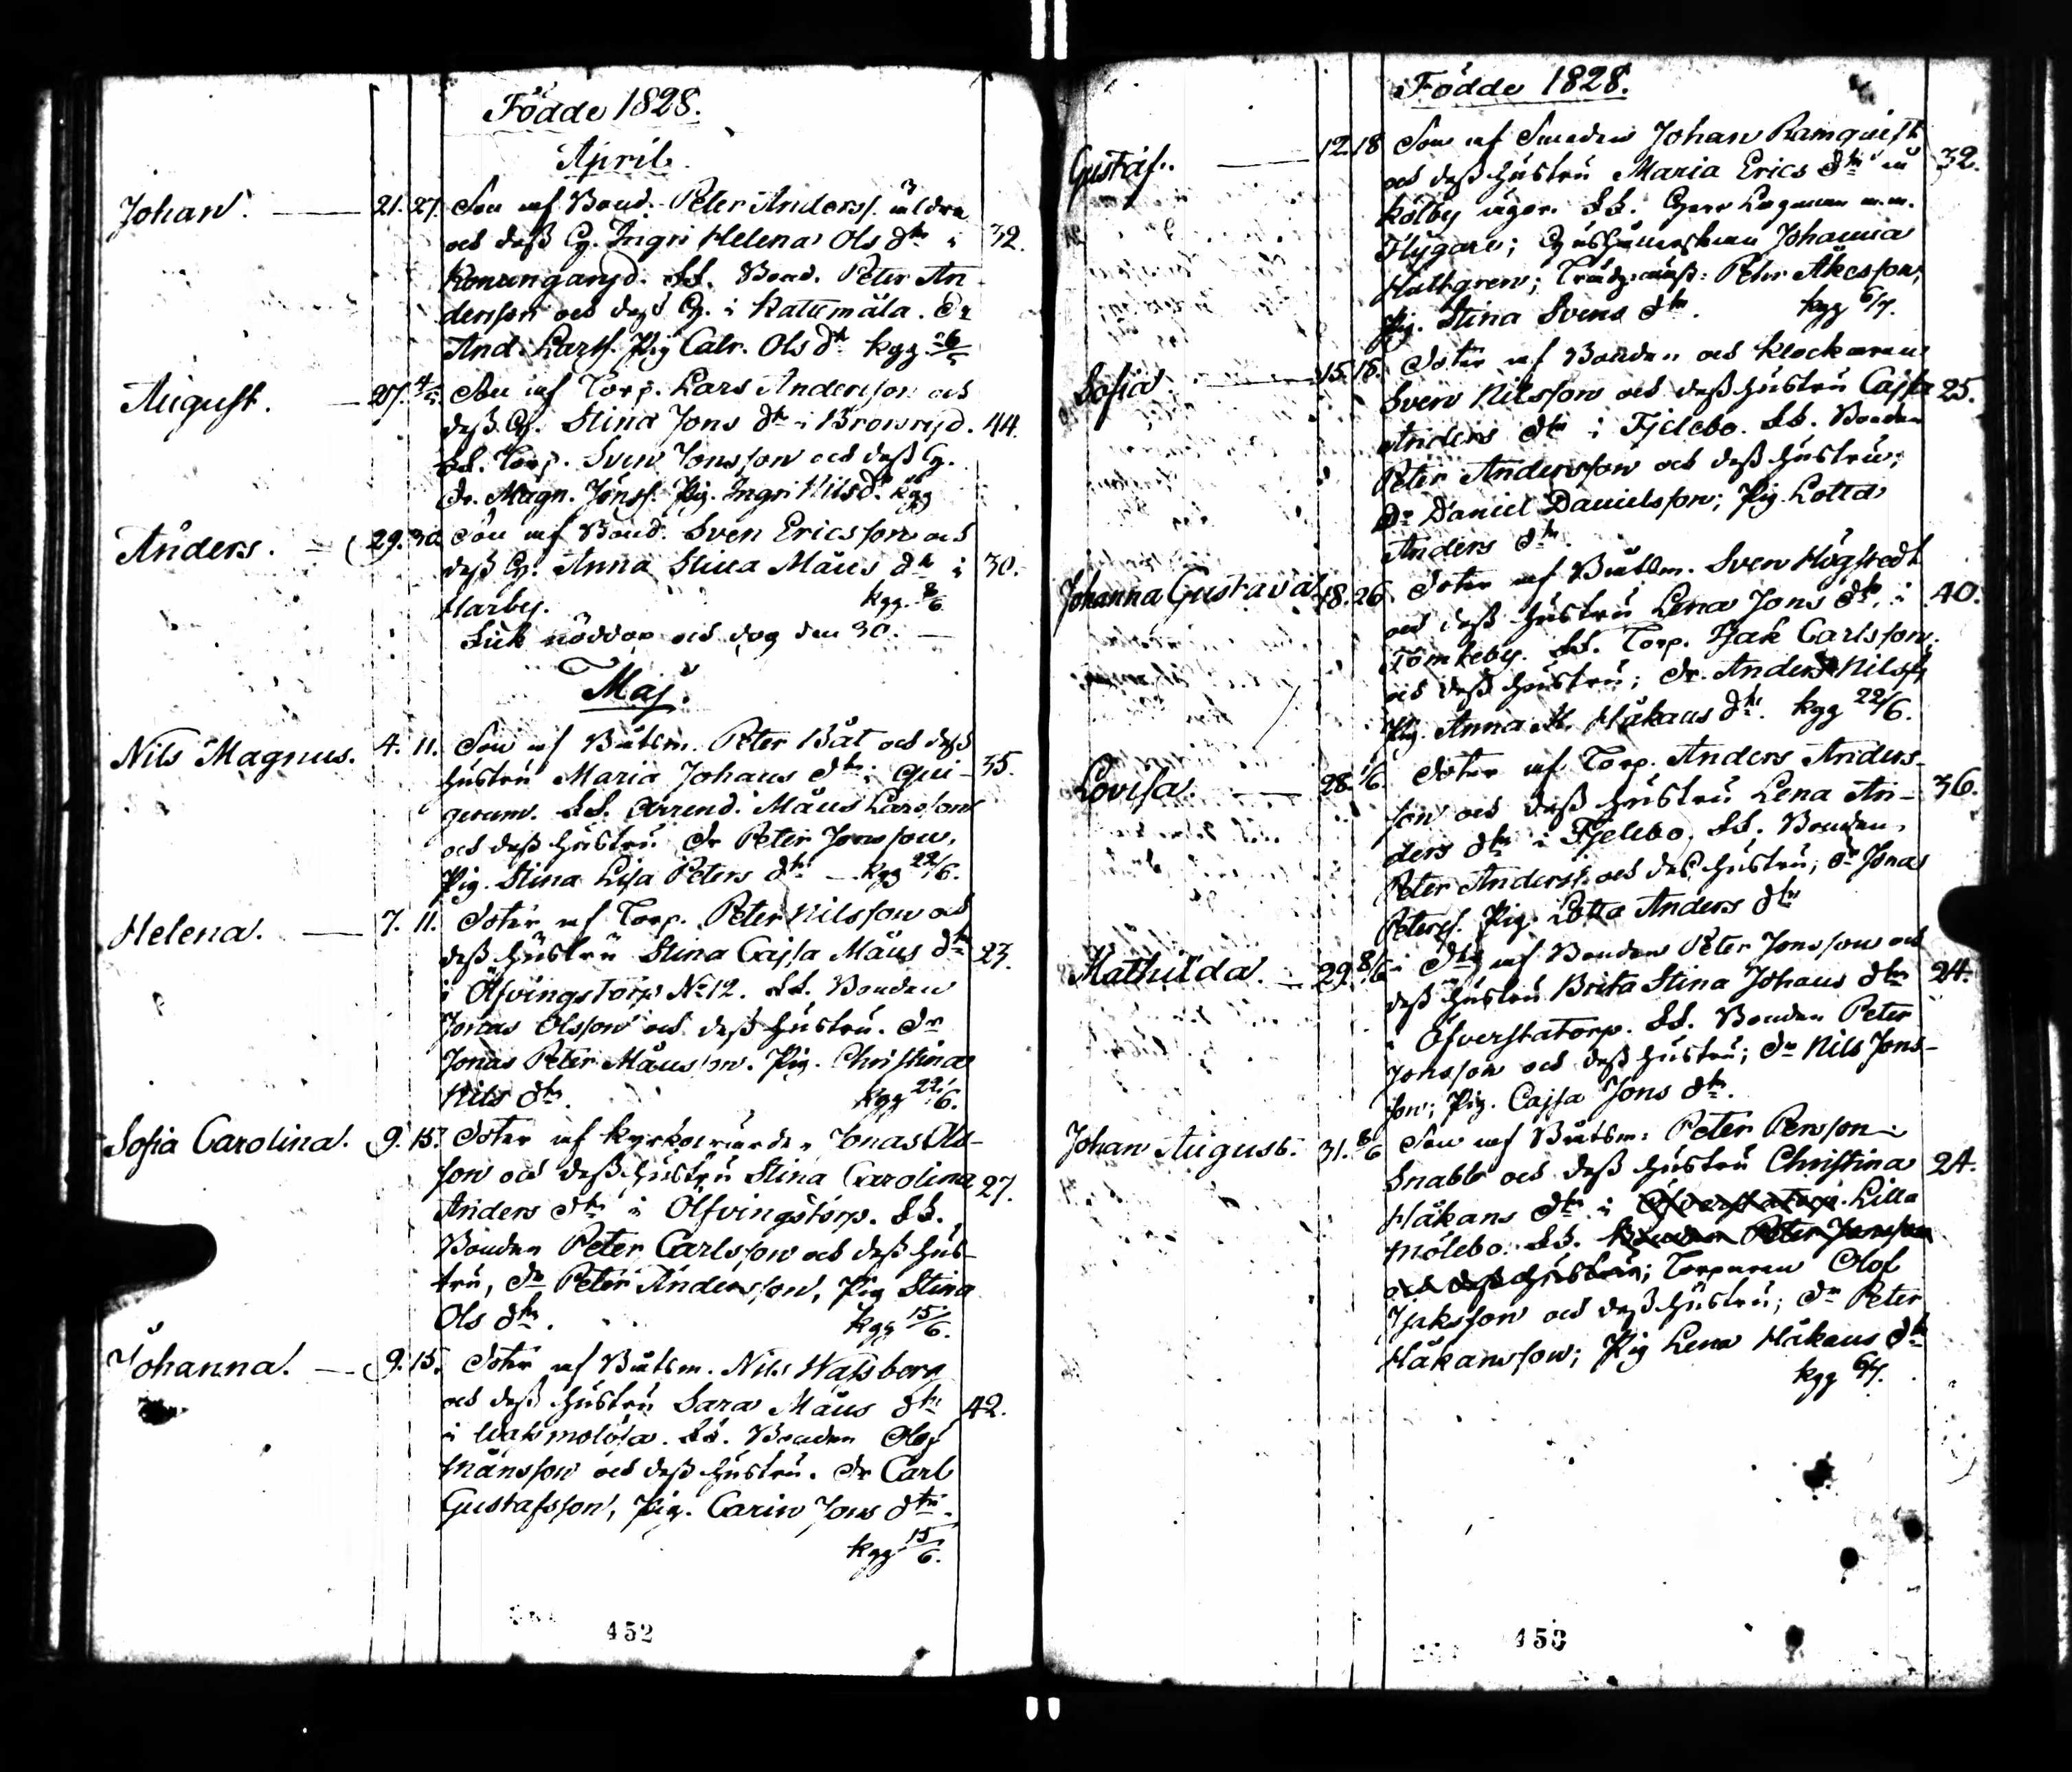 Födde 1828.
April.
Johan. 21. 27. Son af Bond. Peter Anderss. äldre
och deß H. Ingri Helena Ols dtr i 32.
SS. Bond. Peter An
dersson och deß H. i Kattemåla. Dr
And. Larss. Pig Catr. Ols dr kgg
August. 27. Son af Torp. Lars Andersson och
deß H. Stina Jons dtr i Bronsryd. 44.
SS. Torp. Sven Jonsson och deß H.
Dr. Magn. Jönss. Pig. Ingri Nils dr kgg
Anders. 29. 30. Son af Bond. Sven Ericsson och
deß H. Anna Stina Måns dtr i 30.
Harby. kgg 8/6
Fick nöddop och dog den 30.
Maj.
Nils Magnus. 4. 11. Son af Båtsm. Peter Båt och deß
hustru Maria Johans dtr i 35.
SS. Arrend. Måns Larsson
och deß hustru Dr Peter Jonsson,
Pig. Stina Lisa Peters dtr kgg 22/6.
Helena. 7. 11. Doter af Torp. Peter Nilsson och
deß hustru Stina Cajsa Måns dtr 23.
i Ölfvingstorp No 12. SS. Bonden
Jonas Olsson och deß hustru. Dr
Jonas Peter Månsson. Pig. Christina
Nils dtr. kgg 22/6.
Sofia Carolina. 9. 15. Doter af Kyrkovärden Jonas Ols-
son och deß hustru Stina Carolina 27.
Anders dtr i Ölfvingstorp. SS.
Bonden Peter Carlsson och deß hus-
tru, Dr Peter Andersson, Pig Stina
Ols dtr. kgg 15/6.
Johanna. 9. 15. Doter af Båtsm. Nils
och deß hustru Sara Måns dtr 42.
i SS. Bonden Olof
Månsson och deß hustru. Dr Carl
Gustafsson, Pig. Carin Jons dtr.
kgg 15/6.
452
Födde 1828.
Gustaf. 12. 18 Son af Smeden Johan Ramquist
och deß hustru Maria Erics dtr 32.
Kölby ägor. SS. Herr Lagman m.m.
Flygare; Johanna
Hultgren; Peter Åkesson,
Pig. Stina Svens dtr. kgg 6/7.
Sofia 15. 18. Doter af Bonden och klockaren
Sven Nilsson och deß hustru Cajsa 25.
Anders dtr i Fjelebo. SS. Bonden
Peter Andersson och deß hustru;
Dr Daniel Danielsson; Pig Lotta
Anders dtr.
Johanna Gustava 18. 26 Doter af Båtsm. Sven Högstedt
och deß hustru Lena Jons dtr. i 40.
Tomteby. SS. Torp. Isak Carlsson,
och deß hustru; Dr. Anders Nilss.
Pig. Anna M. Håkans dtr. kgg 22/6.
Lovisa. 28. 1/6 Doter af Torp. Anders Anders-
son och deß hustru Lena An- 36.
ders dtr i Fjelebo. SS. Bonden
Peter Anderss. och deß hustru; Dr Jonas
Peterss. Pig. Lotta Anders dtr
Mathilda. 29. 8/6 Dtr af Bonden Peter Jonsson och
deß hustru Brita Stina Johans dtr 24.
i Öfverstatorp. SS. Bonden Peter
Jonsson och deß hustru; Dr Nils Jons-
son; Pig. Cajsa Jons dtr.
Johan August. 31. 8/6 Son af Båtsm. Peter Person
Snabb och deß hustru Christina 24.
Håkans dtr i Öfverstatorp. Lilla
Mölebo. SS. Bonden Peter Jonsson
och deß hustru; Torparen Olof
Isaksson och deß hustru; Dr Peter
Håkansson; Pig Lena Håkans dtr
kgg 6/7.
453